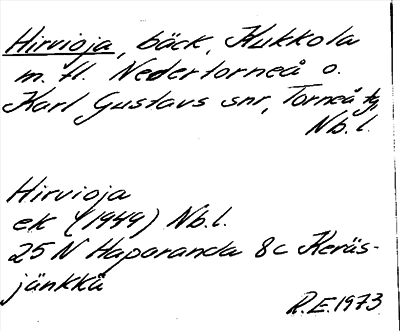 Hirvioja, bäck, Kukkola
m. fl. Nedertorneå o.
Karl Gustavs snr, Torneå tg,
Nb.l.
Hirvioja
ek (1949) Nb.l.
25 N Haparanda 8c Keräs-
jänkkä
R.E. 1973